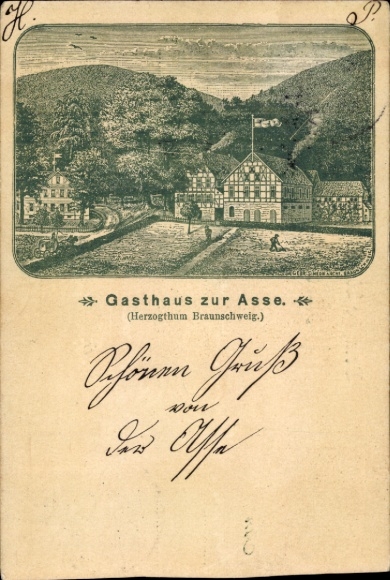 H. P.
Gasthaus zur Asse.
(Herzogthum Braunschweig.)
Schönen Gruß
von
der Asse